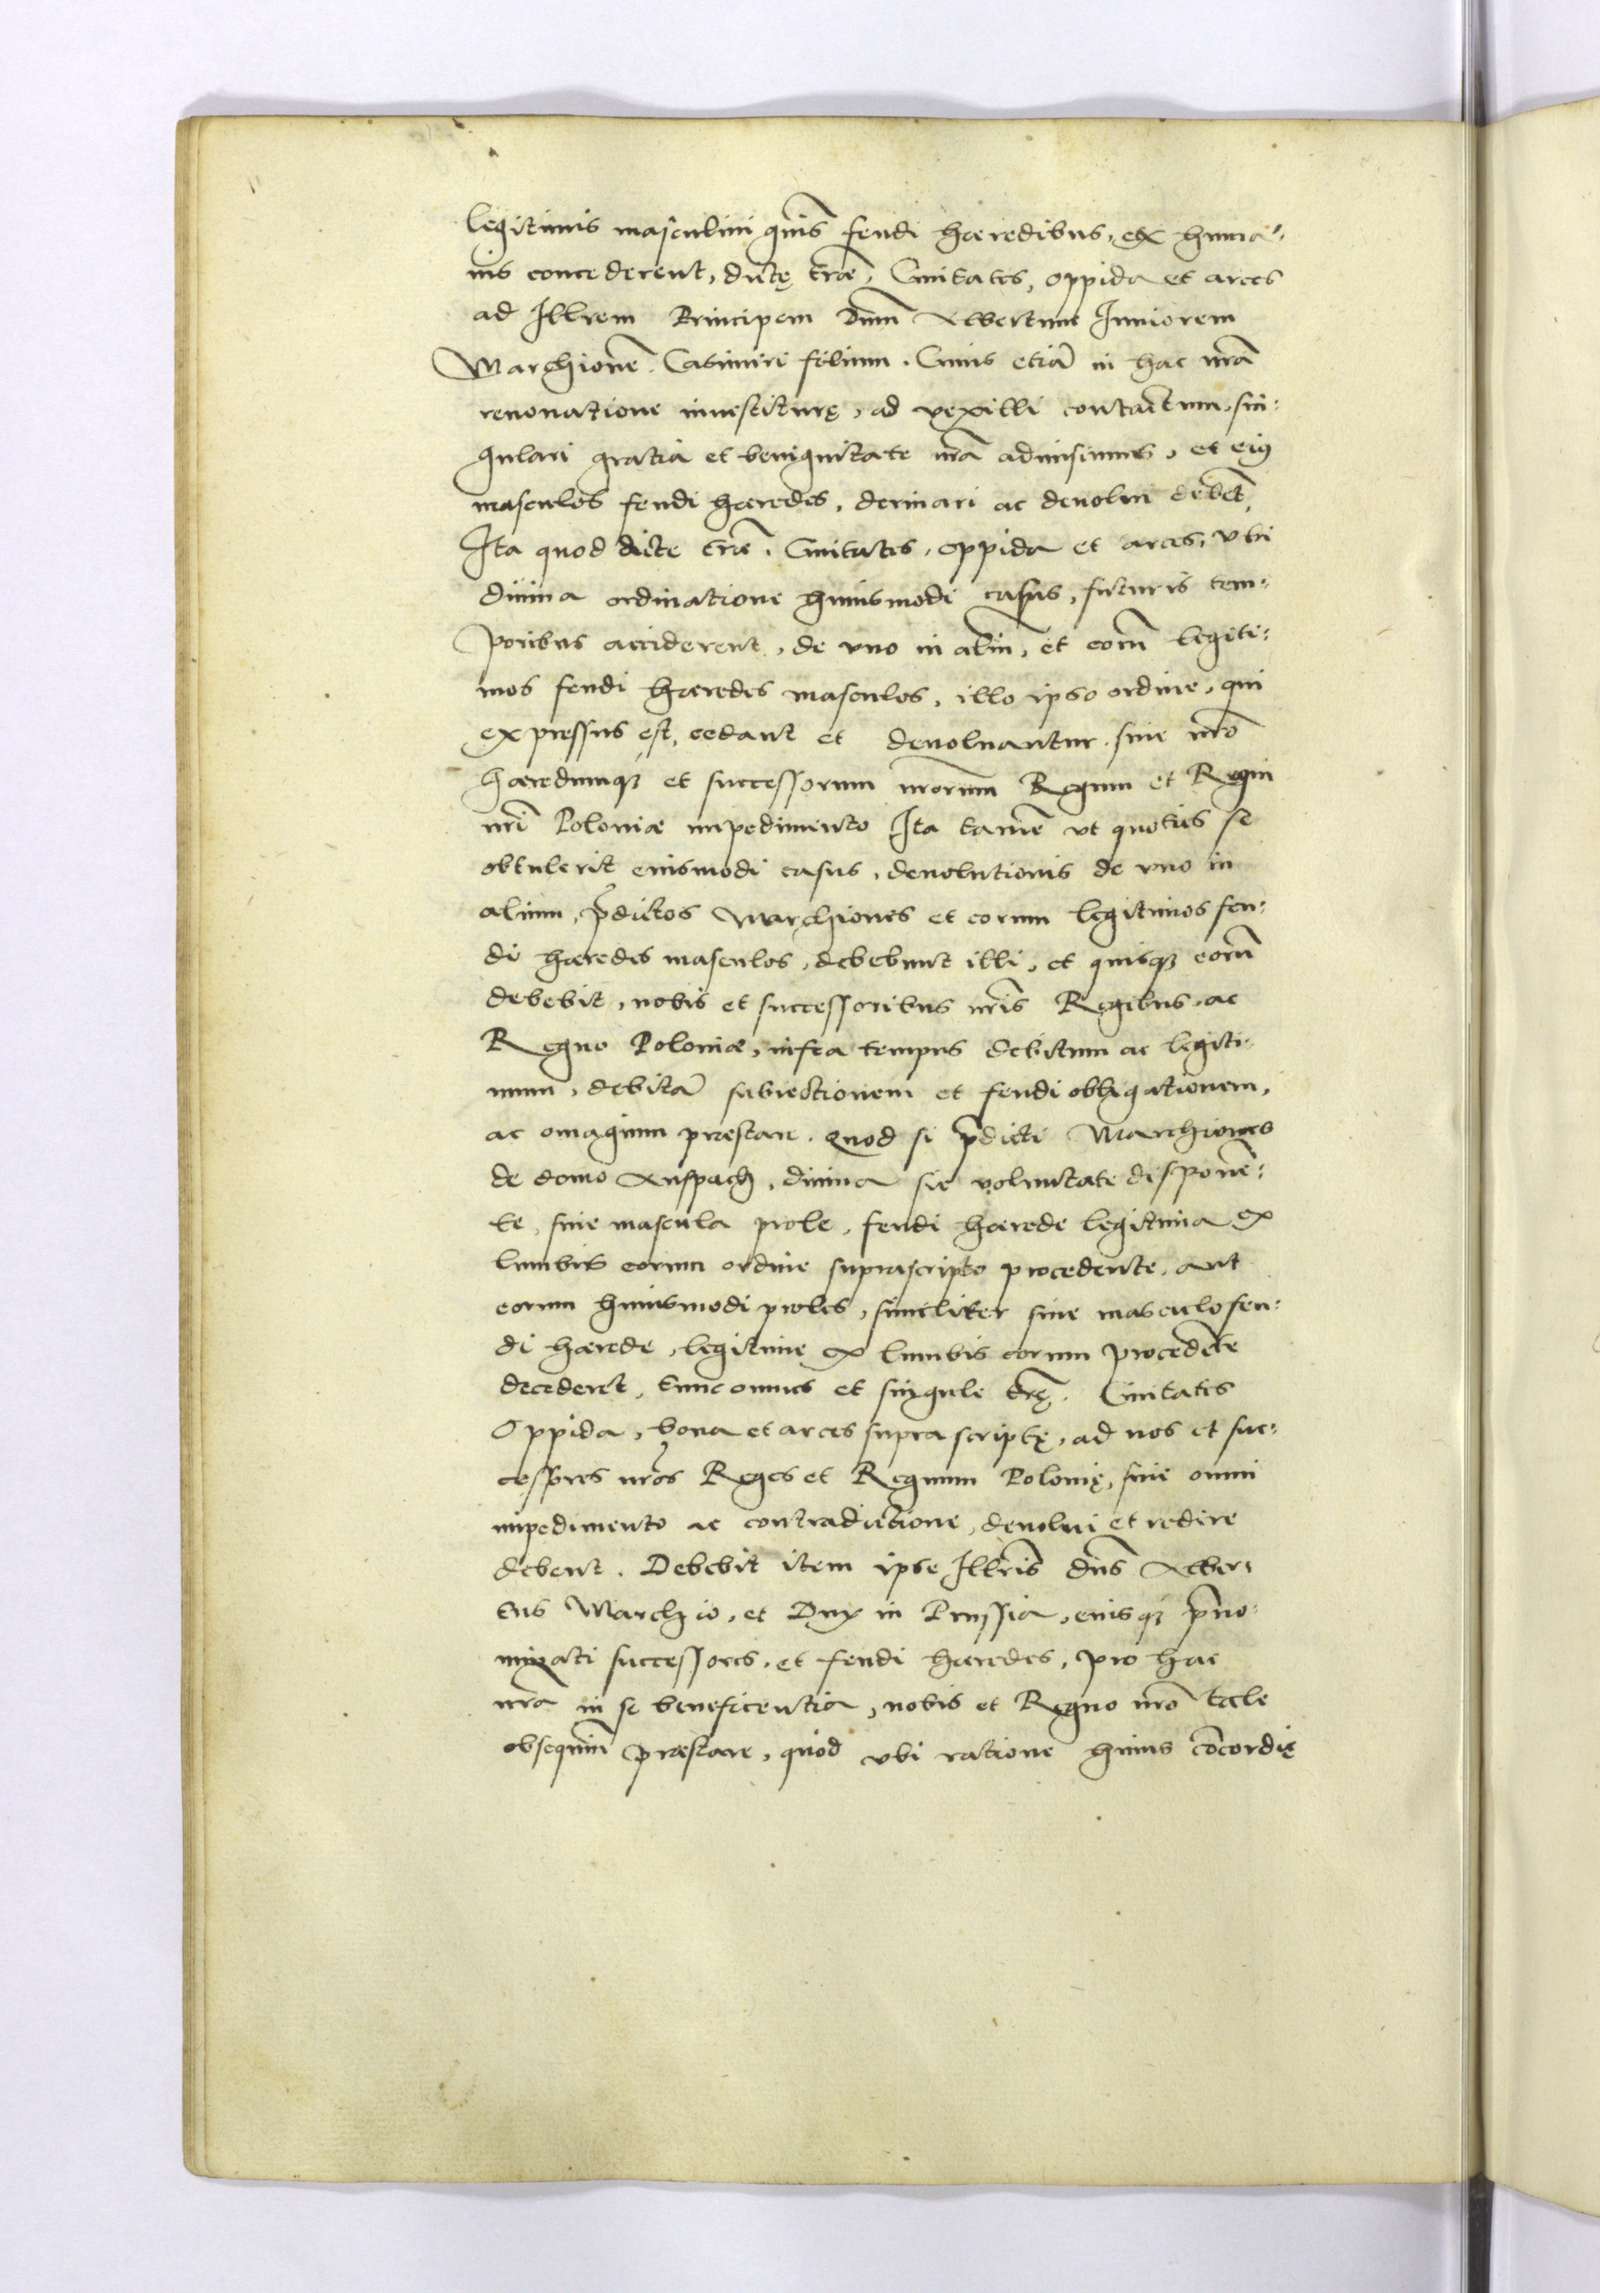 legitimis masculini gn̄is feudi hæredibus, ex humā⸗
nis concederent, dictę tr̄æ, Ciuitates, oppida et arces
ad Illrem Principem Dnm̄ Albertum Iuniorem
Marchionē Casimiri filium. Cuius etiā in hac nr̄a
renouatione inuestiturę, ad vexilli contactum, sin⸗
gulari gratia et benignitate nr̄a admisimus, et eius
masculos feudi hæredes, deriuari ac deuolui debēt,
Ita quod dicte tr̄æ, Ciuitates, oppida et arces, vbi
diuina ordinatione huiusmodi casus, futuris tem⸗
poribus acciderent, de vno in aliū, et eorū legiti⸗
mos feudi hæredes masculos, illo ipso ordine, qui
expressus est, cedant et deuoluantur sine nr̄o
hæredumqꝫ et successorum nr̄orum Regum et Regni
nr̄i Poloniæ impedimento Ita tamē vt quoties se
obtulerit eiusmodi casus, deuolutionis de vno in
alium, p̄dictos Marchiones et eorum legitimos feu⸗
di hæredes masculos, debebunt illi, et quisqꝫ eorū
debebit, nobis et successoribus nr̄is Regibus, ac
Regno Poloniæ, infra tempus debitum ac legiti⸗
mum, debitā subiectionem et feudi obligationem,
ac omagium præstare. Quod si p̄dicti Marchiones
de domo Anspach, diuina sic voluntate disponē⸗
te, sine mascula prole, feudi hærede legitima ex
lumbis eorum ordine suprascripto procedente, aut
eorum huiusmodi proles, similiter sine masculo feu⸗
di hærede, legitime ex lumbis eorum procedēte
decederet, tunc omnes et singule tr̄ę, Ciuitates
Oppida, bona et arces supra scriptę, ad nos et suc⸗
cessores nr̄os Reges et Regnum Polonię, sine omni
impedimento ac contradictione, deuolui et redire
debent. Debebit item ipse Illris̄ dn̄s Alber⸗
tus Marchio, et Dux in Prussia, eiusqꝫ p̄no⸗
minati successores, et feudi hæredes, pro hac
nr̄a in se beneficentia, nobis et Regno nr̄o tale
obsequiū præstare, quod vbi ratione huius cōcordię